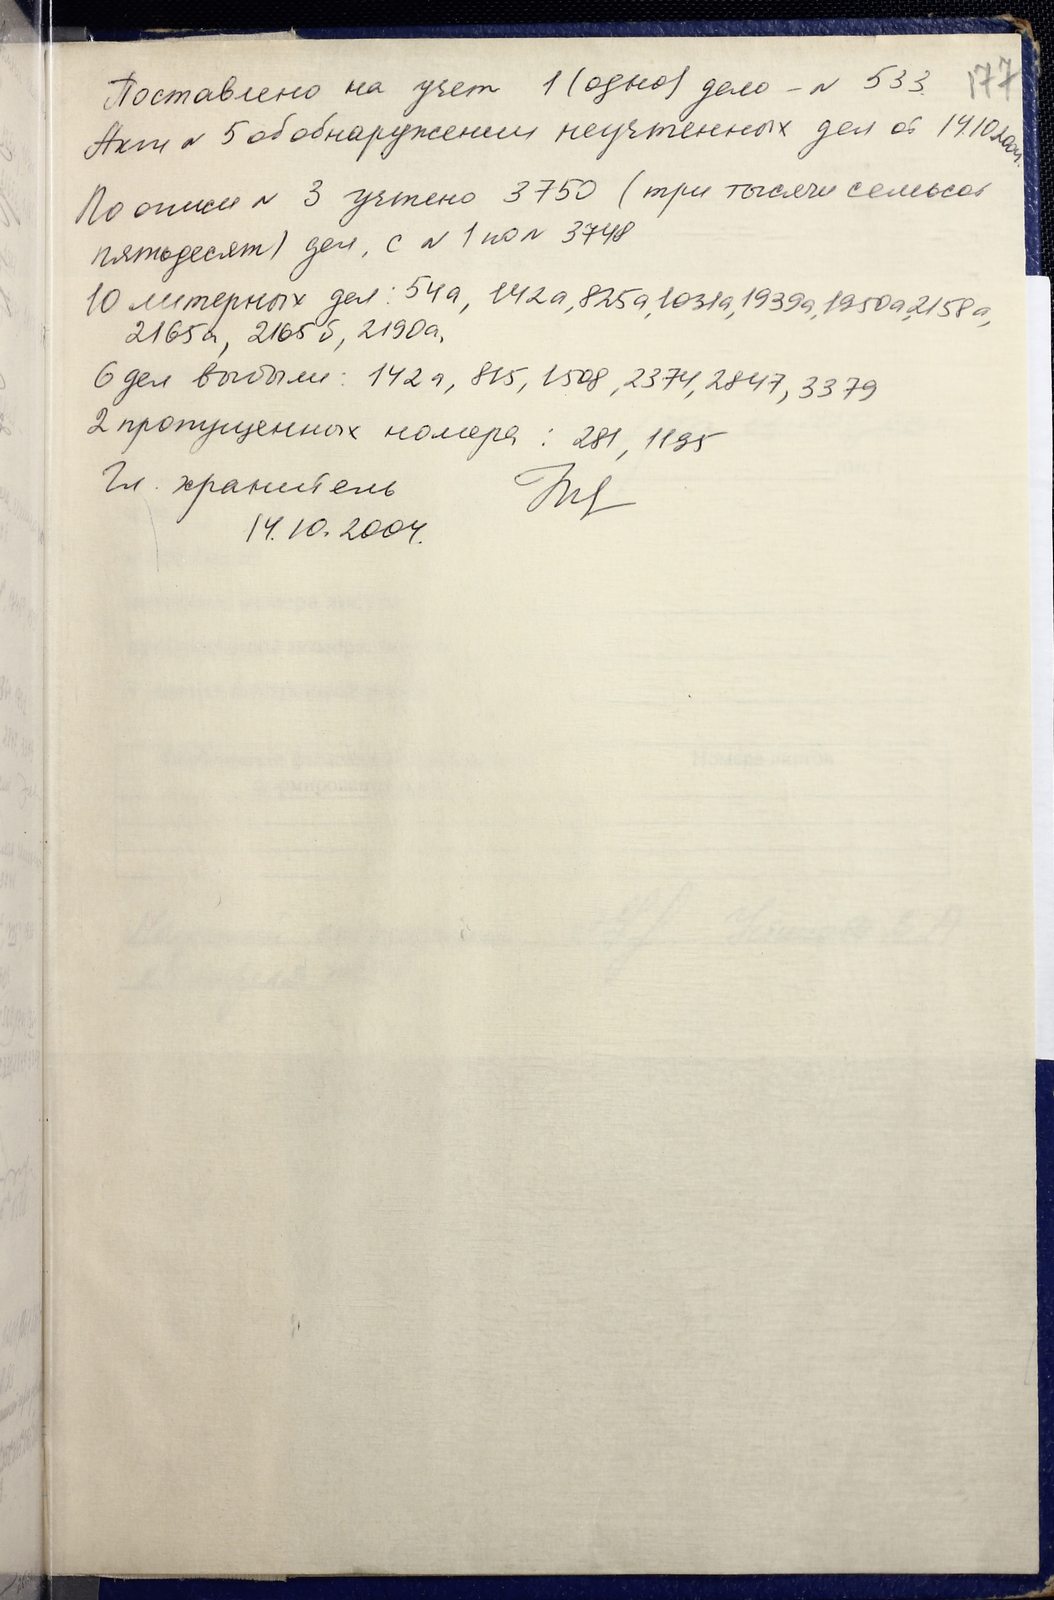 177
Поставлено на учет 1 (одно) дело – N 533.
Акт N 5 об обнаружении неучтенных дел от 14.10.2004г.
По описи N 3 учтено 3750 (три тысячи семьсот
пятьдесят) дел, с N 1 по N 3748
10 литерных дел: 54а, 142а, 825а, 1031а, 1939а, 1950а, 2158а,
2165а, 2165б, 2190а.
6 дел выбыли: 142а, 815, 1508, 2374, 2847, 3379
2 пропущенных номера: 281, 1195
Гл. хранитель
14.10.2004.